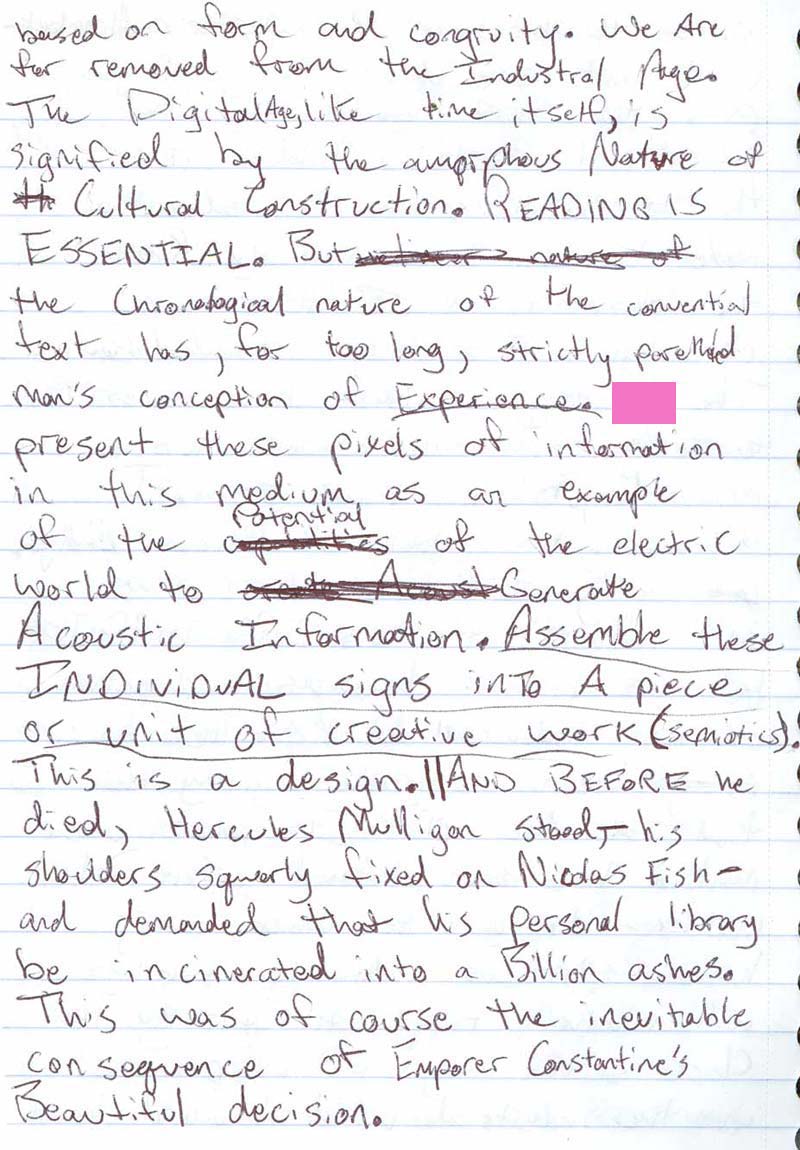 based on form and congruity. We Are
far removed from the Industral Age.
The Digital Age, like time itself, is
signified by the amorphous Nature of
Cultural Construction. READING IS
ESSENTIAL. But
the Chronological nature of the convential
text has, for too long, strictly parelleled
man's conception of Experience.
present these pixels of information
in this medium as an example
of the Potential of the electric
world to Generate
Acoustic Information. Assemble these
INDIVIDUAL signs inTo A piece
or unit of creative work (semiotics).
This is a design. || AND BEFORE he
died, Hercules Mulligan stood – his
shoulders squarly fixed on Nicolas Fish –
and demanded that his personal library
be incinerated into a Billion ashes.
This was of course the inevitable
consequence of Emporer Constantine's
Beautiful decision.